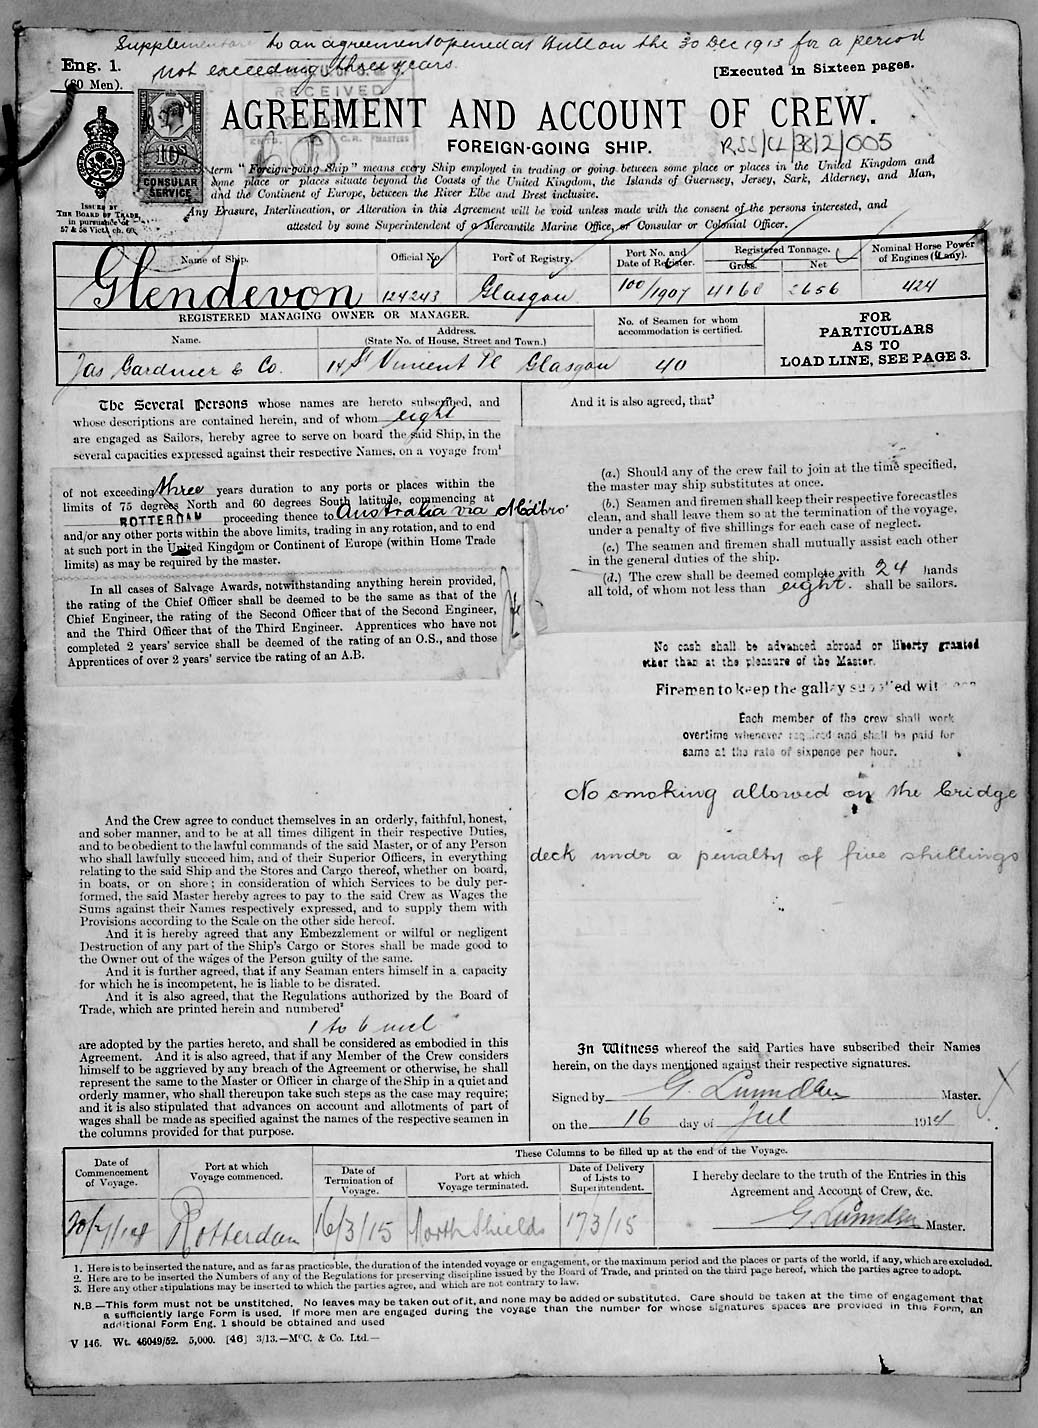 Supplementary to an agreement opened at Hull on the 30 Dec 1913 for a period
not exceeding three years.
Eng. 1.
(80 Men).
[Executed in Sixteen pages.
RECEIVED
AGREEMENT AND ACCOUNT OF CREW.
FOREIGN-GOING SHIP.
RSS/CL/3812/005
CONSULAR
SERVICE
term "Foreign-going Ship" means every Ship employed in trading or going between some place or places in the United Kingdom and
some place or places situate beyond the Coasts of the United Kingdom, the Islands of Guernsey, Jersey, Sark, Alderney, and Man,
and the Continent of Europe, between the River Elbe and Brest inclusive.
Any Erasure, Interlineation, or Alteration in this Agreement will be void unless made with the consent of the persons interested, and
attested by some Superintendent of a Mercantile Marine Office, or Consular or Colonial Officer.
ISSUED BY
THE BOARD OF TRADE,
in pursuance of
57 & 58 Vict. ch. 60.
Name of Ship. Official No. Port of Registry. Port No. and Date of Register. Registered Tonnage. Gross. Net Nominal Horse Power of Engines (if any).
Glendevon 124243 Glasgow 100/1907 4160 2656 424
REGISTERED MANAGING OWNER OR MANAGER.
Name. Address. (State No. of House, Street and Town.) No. of Seamen for whom accommodation is certified.
FOR PARTICULARS AS TO LOAD LINE, SEE PAGE 3.
Jas Gardiner & Co. 14 St Vincent Pl Glasgow 40
The Several Persons whose names are hereto subscribed, and
whose descriptions are contained herein, and of whom eight
are engaged as Sailors, hereby agree to serve on board the said Ship, in the
several capacities expressed against their respective Names, on a voyage from¹
of not exceeding three years duration to any ports or places within the
limits of 75 degrees North and 60 degrees South latitude, commencing at
ROTTERDAM proceeding thence to Australia via M'dbro'
and/or any other ports within the above limits, trading in any rotation, and to end
at such port in the United Kingdom or Continent of Europe (within Home Trade
limits) as may be required by the master.
In all cases of Salvage Awards, notwithstanding anything herein provided,
the rating of the Chief Officer shall be deemed to be the same as that of the
Chief Engineer, the rating of the Second Officer that of the Second Engineer,
and the Third Officer that of the Third Engineer. Apprentices who have not
completed 2 years' service shall be deemed of the rating of an O.S., and those
Apprentices of over 2 years' service the rating of an A.B.
And the Crew agree to conduct themselves in an orderly, faithful, honest,
and sober manner, and to be at all times diligent in their respective Duties,
and to be obedient to the lawful commands of the said Master, or of any Person
who shall lawfully succeed him, and of their Superior Officers, in everything
relating to the said Ship and the Stores and Cargo thereof, whether on board,
in boats, or on shore; in consideration of which Services to be duly per-
formed, the said Master hereby agrees to pay to the said Crew as Wages the
Sums against their Names respectively expressed, and to supply them with
Provisions according to the Scale on the other side hereof.
And it is hereby agreed that any Embezzlement or wilful or negligent
Destruction of any part of the Ship's Cargo or Stores shall be made good to
the Owner out of the wages of the Person guilty of the same.
And it is further agreed, that if any Seaman enters himself in a capacity
for which he is incompetent, he is liable to be disrated.
And it is also agreed, that the Regulations authorized by the Board of
Trade, which are printed herein and numbered²
1 to 6 incl
are adopted by the parties hereto, and shall be considered as embodied in this
Agreement. And it is also agreed, that if any Member of the Crew considers
himself to be aggrieved by any breach of the Agreement or otherwise, he shall
represent the same to the Master or Officer in charge of the Ship in a quiet and
orderly manner, who shall thereupon take such steps as the case may require;
and it is also stipulated that advances on account and allotments of part of
wages shall be made as specified against the names of the respective seamen in
the columns provided for that purpose.
And it is also agreed, that³
(a.) Should any of the crew fail to join at the time specified,
the master may ship substitutes at once.
(b.) Seamen and firemen shall keep their respective forecastles
clean, and shall leave them so at the termination of the voyage,
under a penalty of five shillings for each case of neglect.
(c.) The seamen and firemen shall mutually assist each other
in the general duties of the ship.
(d.) The crew shall be deemed complete with 24 hands
all told, of whom not less than eight. shall be sailors.
No cash shall be advanced abroad or liberty granted
other than at the pleasure of the Master.
Firemen to keep the galley supplied with
Each member of the crew shall work
overtime whenever required and shall be paid for
same at the rate of sixpence per hour.
No smoking allowed on the bridge
deck under a penalty of five shillings
In Witness whereof the said Parties have subscribed their Names
herein, on the days mentioned against their respective signatures.
Signed by G. Lumsden Master.
on the 16 day of Jul 1914
These Columns to be filled up at the end of the Voyage.
Date of Commencement of Voyage. Port at which Voyage commenced. Date of Termination of Voyage. Port at which Voyage terminated. Date of Delivery of Lists to Superintendent.
I hereby declare to the truth of the Entries in this
Agreement and Account of Crew, &c.
20/7/14 Rotterdam 16/3/15 North Shields 17 3/15 G. Lumsden Master.
1. Here is to be inserted the nature, and as far as practicable, the duration of the intended voyage or engagement, or the maximum period and the places or parts of the world, if any, which are excluded.
2. Here are to be inserted the Numbers of any of the Regulations for preserving discipline issued by the Board of Trade, and printed on the third page hereof, which the parties agree to adopt.
3. Here any other stipulations may be inserted to which the parties agree, and which are not contrary to law.
N.B.—This form must not be unstitched. No leaves may be taken out of it, and none may be added or substituted. Care should be taken at the time of engagement that
a sufficiently large Form is used. If more men are engaged during the voyage than the number for whose signatures spaces are provided in this Form, an
additional Form Eng. 1 should be obtained and used
V 146. Wt. 46049/52. 5,000. [46] 3/13.—McC. & Co. Ltd.—